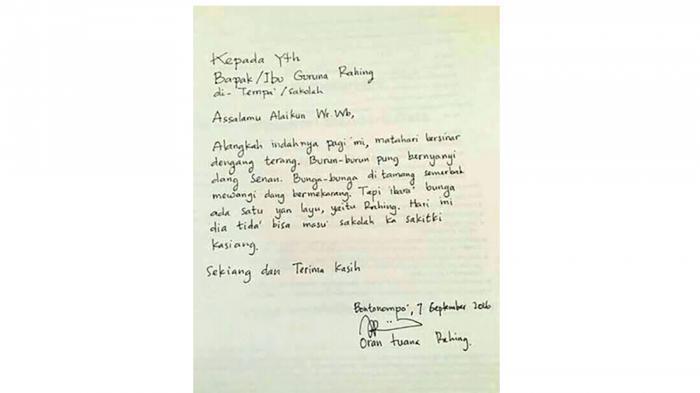 Kepada Yth
Bapak/Ibu Guruna Rahing
di- Tempa'/sakolah
Assalamu Alaikun Wr.Wb,
Alangkah indahnya pagi ini, matahari bersinar
dengang terang. Burun-burun pung bernyanyi
dang Senan. Bunga-bunga di tamang semerbak
mewangi dang bermekarang. Tapi ibara' bunga
ada satu yan layu, yaitu Rahing. Hari ini
dia tida' bisa masu' sakolah ka sakitki
kasiang.
Sekiang dan Terima Kasih
Bontonompo', 7 September 2016
Oran tuana Rahing.